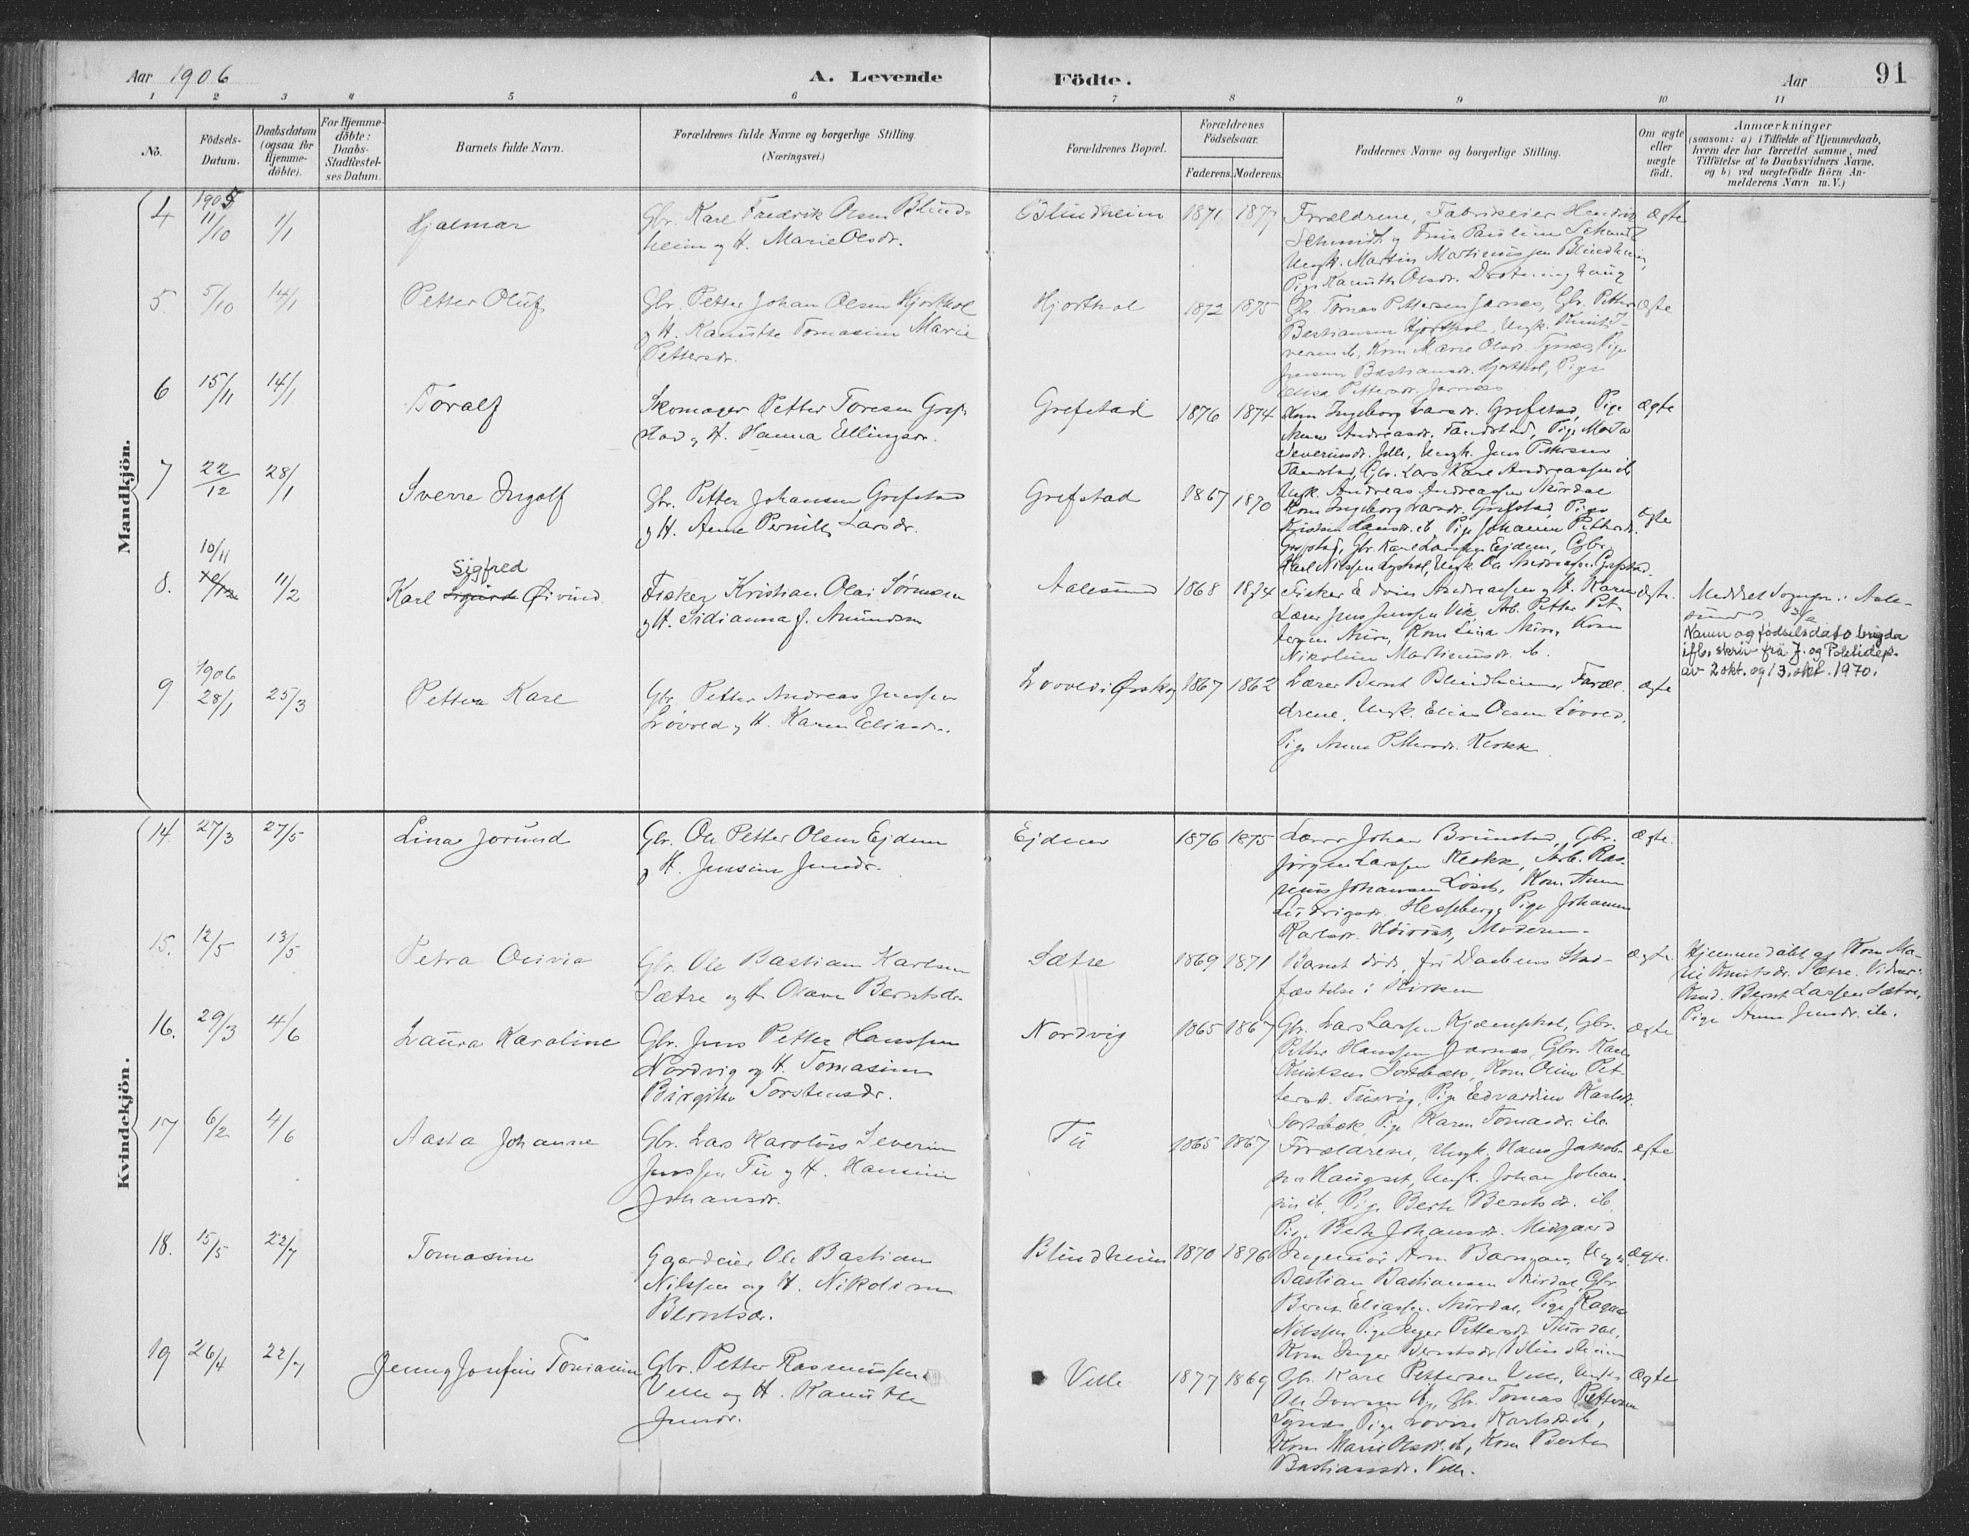 Aar 1906
A. Levende
Födte.
Aar
91
1 2 3 4 5 6 7 8 9 10 11
No.
Födsels-
Datum.
Daabsdatum
(ogsaa for
Hjemme-
döbte).
For Hjemme-
döbte:
Daabs-
Stadfæstel-
ses Datum.
Barnets fulde Navn.
Forældrenes fulde Navne og borgerlige Stilling.
(Næringsvei.)
Forældrenes Bopæl.
Forældrenes
Födselsaar.
Faderens. Moderens.
Faddernes Navne og borgerlige Stilling.
Om ægte
eller
uægte
födt.
Anmærkninger
(saasom: a) i Tilfælde af Hjemmedaab,
hvem der har forrettet samme, med
Tilföielse af to Daabsvidners Navne,
og b) ved uægtefödte Börn An-
melderens Navn m. V.)
Mandkjön.
4
1905
11/10
1/1
Hjalmar
Gbr. Karl Fredrik Olsen Blind-
heim og H. Marie Olsdr.
Blindheim
1871
Forældrene, Fabrikeier Henrik
Schmidt og Fru Pauline Schmidt
Ungk. Martin Martinussen Blindheim,
Pige Kanutte Olsdr. Dronninghaug
Ægte
5.
5/10
14/1
Petter Oluf
Gbr. Petter Johan Olsen Hjorthol
og H. Kanutte Tomasine Marie
Pettersdr.
Hjorthol
1872 1875
Gbr. Tomas Pettersen Jarnæs, Gbr. Petter
Bastiansen Hjorthol, Ungk. Knut I-
versen ib, Kone Marie Olsdr. Tynæs, Pige
Jensine Bastiansdr. Hjorthol, Pige
Elisa Pettersdr. Jarnæs
ægte
6
15/11
14/1
Toralf
Skomager Petter Toresen Gref-
stad og H. Hanna Ellingsdr.
Grefstad
1876 1874
Kone Ingeborg Larsdr. Grefstad, Pige
Anne Andreasdr. Tandstad, Pige Marta
Severinsdr. Ungk. Jens Petersen
Tandstad, Gbr. Lars Karl Andreassen ib
ægte
7
22/12
28/1
Sverre Ingolf
Gbr. Petter Johansen Grefstad
og H. Anne Pernille Larsdr.
Grefstad
1867 1870
Ungk. Andreas Andreassen Mürdal
Kone Ingeborg Larsdr. Grefstad, Pige
Kristine Hansdr. ib. Pige Johanne Pettersdr.
Grefstad, Gbr. Karl Larssen Ejdem, Gbr.
Karl Nilssen Lyshol, Ungk. Ole Andreassen Grefstad.
ægte
8.
10/11
10/12
11/2
Sigfred
Karl Sigurd Øivind
Fisker Kristian Olai Sørensen
og H. Sidianna f. Amundsen
Aalesund
1868 1874
Fisker Edvin Andreassen og H. Karen
Lærer Jens Jenssen Vik, Arb. Petter Pet-
tersen Kone Lina Kone
Nikoline Martinusdr. ib.
ægte.
Meddelt Sognepr. i Aale-
sund
Navn og fødselsdato brigda
ifb. skriv frå J. og Politidep.
av 2 okt. og 13. okt. 1970.
9
1906
28/1
25/3
Petter Karl
Gbr. Petter Andreas Jenssen
Løvred og H. Karen Eliasdr.
Løvred i Ørskog
1867 1862
Lærer Bernt Blindheim, Foræl-
drene, Ungk. Elias Olsen Løvred,
Pige Anne Pettersdr. Klokk
ægte
Kvindekjön.
14.
27/3
27/5
Lina Jorund
Gbr. Ole Petter Olsen Ejdem
og H. Jensine Jensdr.
Ejdem
1876 1875
Lærer Johan Brunstad, Gbr.
Jørgen Larssen Klokk, Arb. Ras-
mus Johansen Løset, Kone Anne
Ludvigsdr. Hessberg, Pige Johanne
Karlsdr. Moderen.
Ægte.
15.
12/5
13/5
Petra Olivia
Gbr. Ole Bastian Karlsen
Sætre og H. Olave Berntsdr.
Sætre
1869 1871
Barnet døde før Daabens Stad-
fæstelse i Kirken
ægte.
Hjemmedøbt af Kone Ma-
rie Knutsdr. Sætre. Vidner:
Bernt Larssen Sætre,
Pige Anne Jensdr. ib.
16.
29/3
4/6
Laura Karoline
Gbr. Jens Petter Hanssen
Nordvig og H. Tomasine
Birgitte Torstensdr.
Nordvig
1865 1867
Gbr. Lars Larssen Kjæmphol, Gbr.
Petter Hanssen Jarnæs, Gbr. Karl
Knutsen Sortebæk, Kone Oline Pet-
tersd. Tusvig, Pige Edvardine Karlsdr.
Sortebæk, Pige Karen Tomasdr. ib.
ægte
17
6/2
4/6
Aasta Johanne
Gbr. Lars Karolus Severin
Jenssen Tu og H. Hansine
Johansdr.
Tu
1865 1867
Forældrene, Ungk. Hans Jakob-
sen Haugset, Ungk. Johan Johan-
sen ib, Pige Berte Berntsdr. ib
Pige Berte Johansdr. Midgaard
ægte
18.
15/5
22/7
Tomasine
Gaardeier Ole Bastian
Nilssen og H. Nikoline
Berntsdr.
Blindheim
1870 1876
Ingeniør Arne Ungk.
Bastian Bastiansen Mürdal, Gbr.
Bernt Eliassen Mürdal, Pige Ragna
Nilssen Pige Inger Pettersdr. Mürdal,
Kone Inger Berntsdr. Blindheim
ægte.
19
26/4
22/7
Jenny Josefine Tomasine
Gbr. Petter Rasmussen
Velle og H. Kanutte
Jensdr.
Velle
1877 1869
Gbr. Karl Pettersen Velle, Ungk.
Ole Iversen Gbr. Tomas Pettersen
Tynæs, Pige Lovise Karlsdr. ib,
Kone Marie Olsdr. ib, Kone Berte
Bastiansdr. Velle.
Ægte